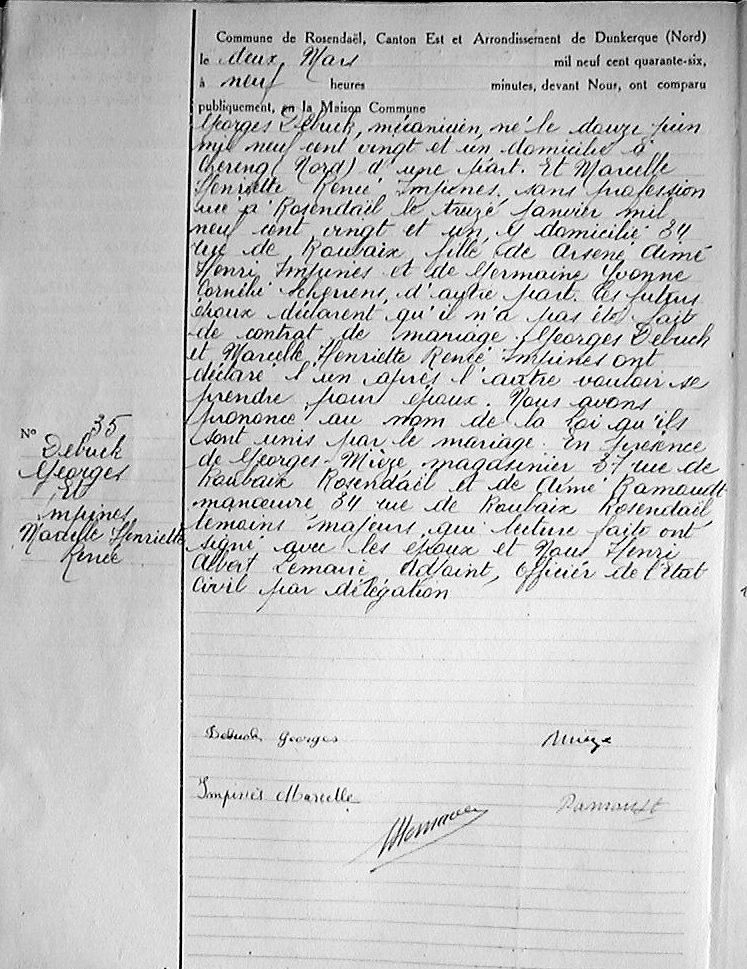 Commune de Rosendaël, Canton Est et Arrondissement de Dunkerque (Nord)
le deux Mars mil neuf cent quarante-six,
à neuf heures minutes, devant Nous, ont comparu
publiquement, en la Maison Commune
Georges Debuck, mécanicien, né le douze juin
mil neuf cent vingt et un domicilié à
Chereng (Nord) d'une part. Et Marcelle
Henriette Renée Impines, sans profession
née à Rosendaël le treize janvier mil
neuf cent vingt et un, et domicilié 34
rue de Roubaix fille de Arsène Aimé
Henri Impines et de Germaine Yvonne
Cornélie Scherrens, d'autre part. Les futurs
époux déclarent qu'il n'a pas été fait
de contrat de mariage. Georges Debuck
et Marcelle Henriette Renée Impines ont
déclaré l'un après l'autre vouloir se
prendre pour époux. Nous avons
prononcé au nom de la Loi qu'ils
sont unis par le mariage. En présence
de Georges Mièze, magasinier 37 rue de
Roubaix Rosendaël et de Aimé Ramoudt
manœuvre 34 rue de Roubaix Rosendaël
témoins majeurs, qui lecture faite ont
signé avec les époux et Nous Henri
Albert Lemaire Adjoint, Officier de l'Etat
Civil par délégation
N° 35
Debuck
Georges
Et
Impines
Marcelle Henriette
Renée
Debuck Georges Mièze
Impines Marcelle Ramoudt